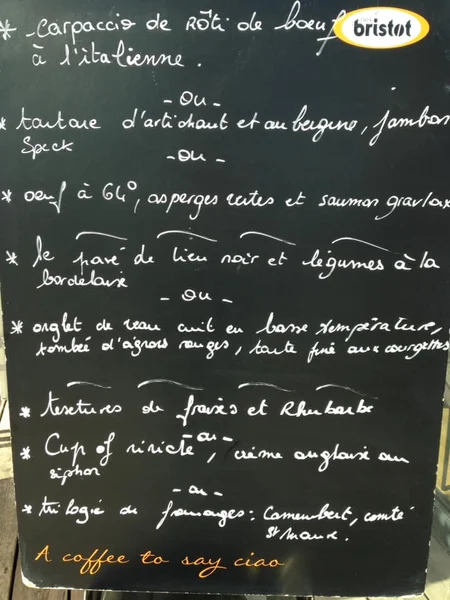 * Carpaccio de Rôti de bœuf
bristot
à l'italienne.
- ou -
* tartare d'artichaut et aubergine, jambon
Speck
- ou -
* oeuf à 64°, asperges vertes et saumon gravlax
* le pavé de lieu noir et légumes à la
bordelaise
- ou -
* onglet de veau cuit en basse température,
tombée d'agnons rouges, tarte fine aux courgettes
* textures de fraises et Rhubarbe
- ou -
* Cup of riviete, crème anglaise au
siphon
- ou -
* trilogie de fromages : Camembert, comté
St Maure.
A coffee to say ciao